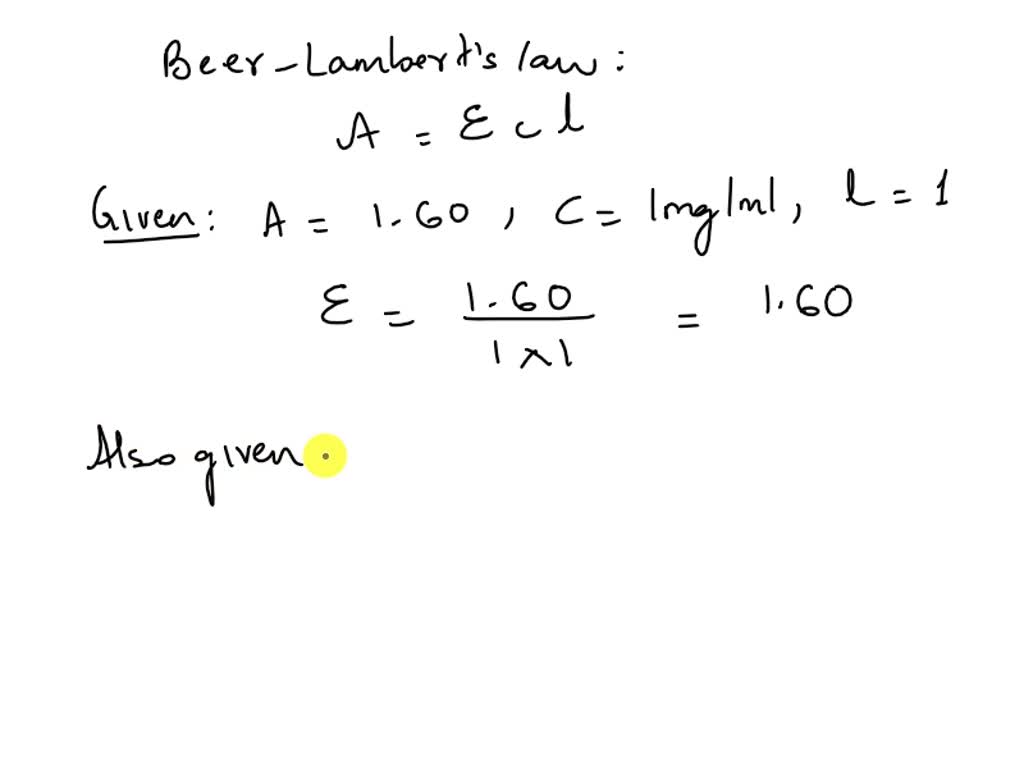 Beer-Lambert's law:
A = ε c l
Given: A = 1.60, C = 1mg/ml, l = 1
ε = 1.60 / 1×1 = 1.60
Also given